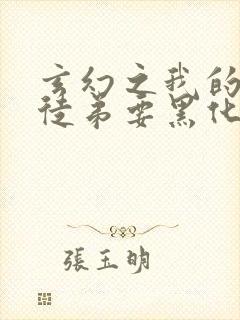 玄幻之我的
徒弟要黑化
張玉明